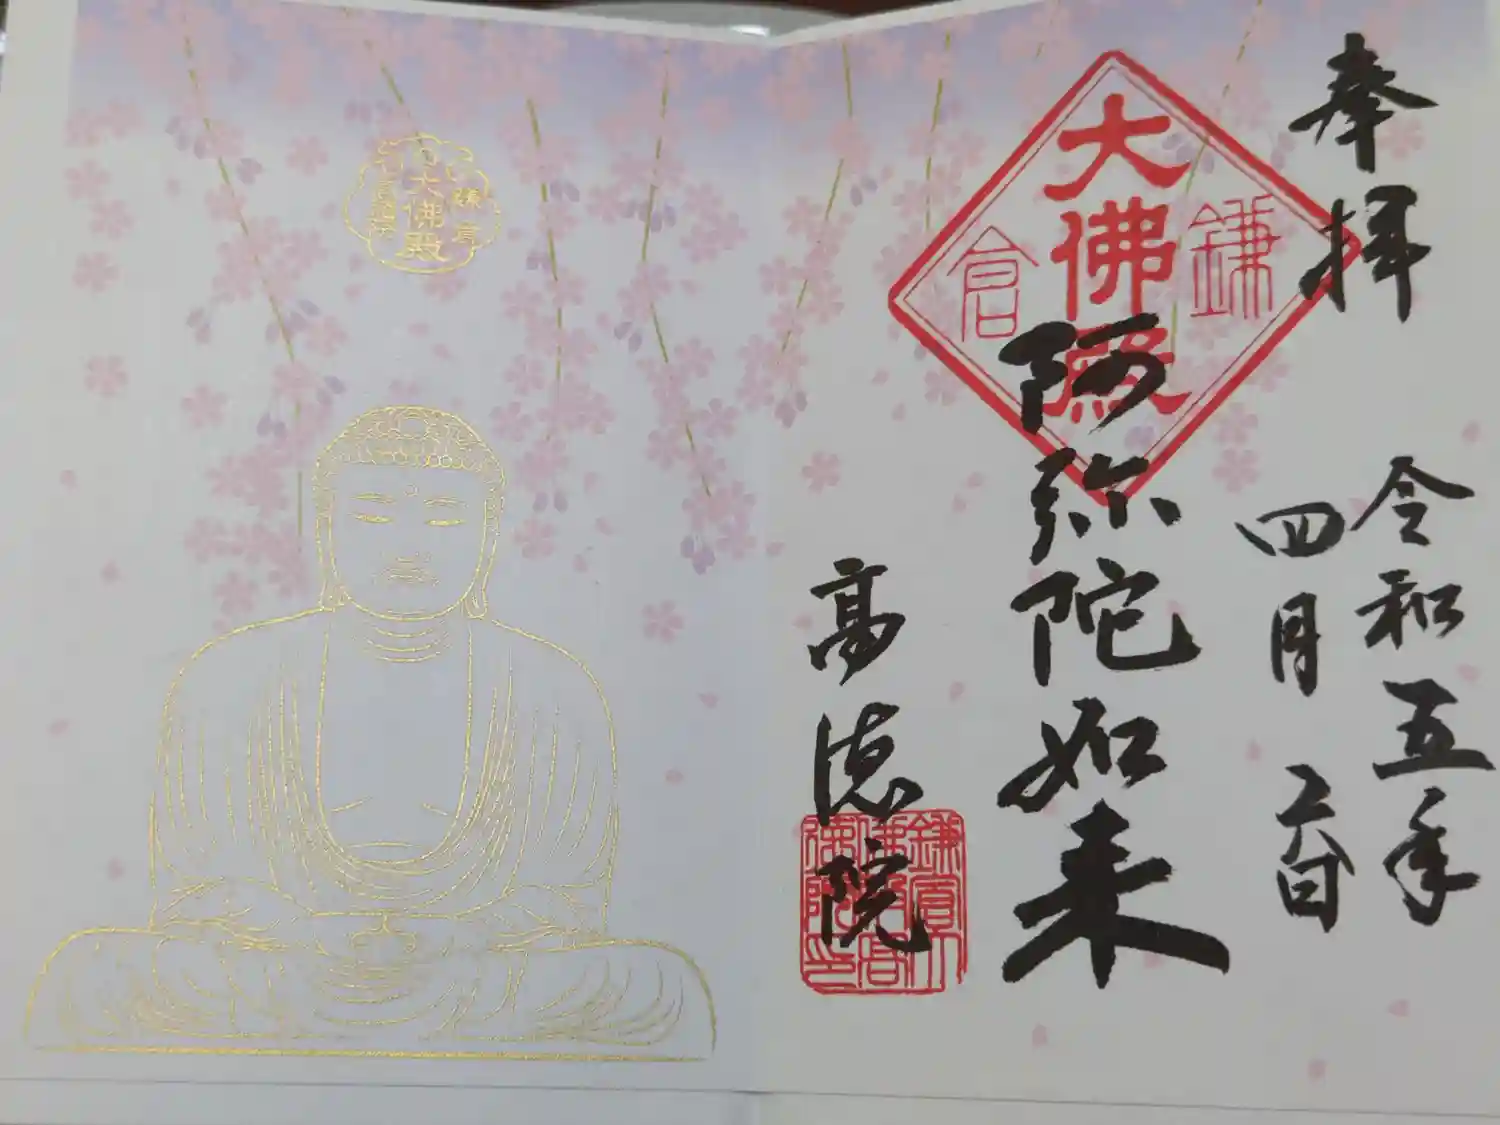 奉拝
令和五年
四月六日
鎌倉
大佛殿
阿弥陀如来
高徳院
鎌倉大
佛殿高
徳院印
鎌倉
大佛殿
高徳院